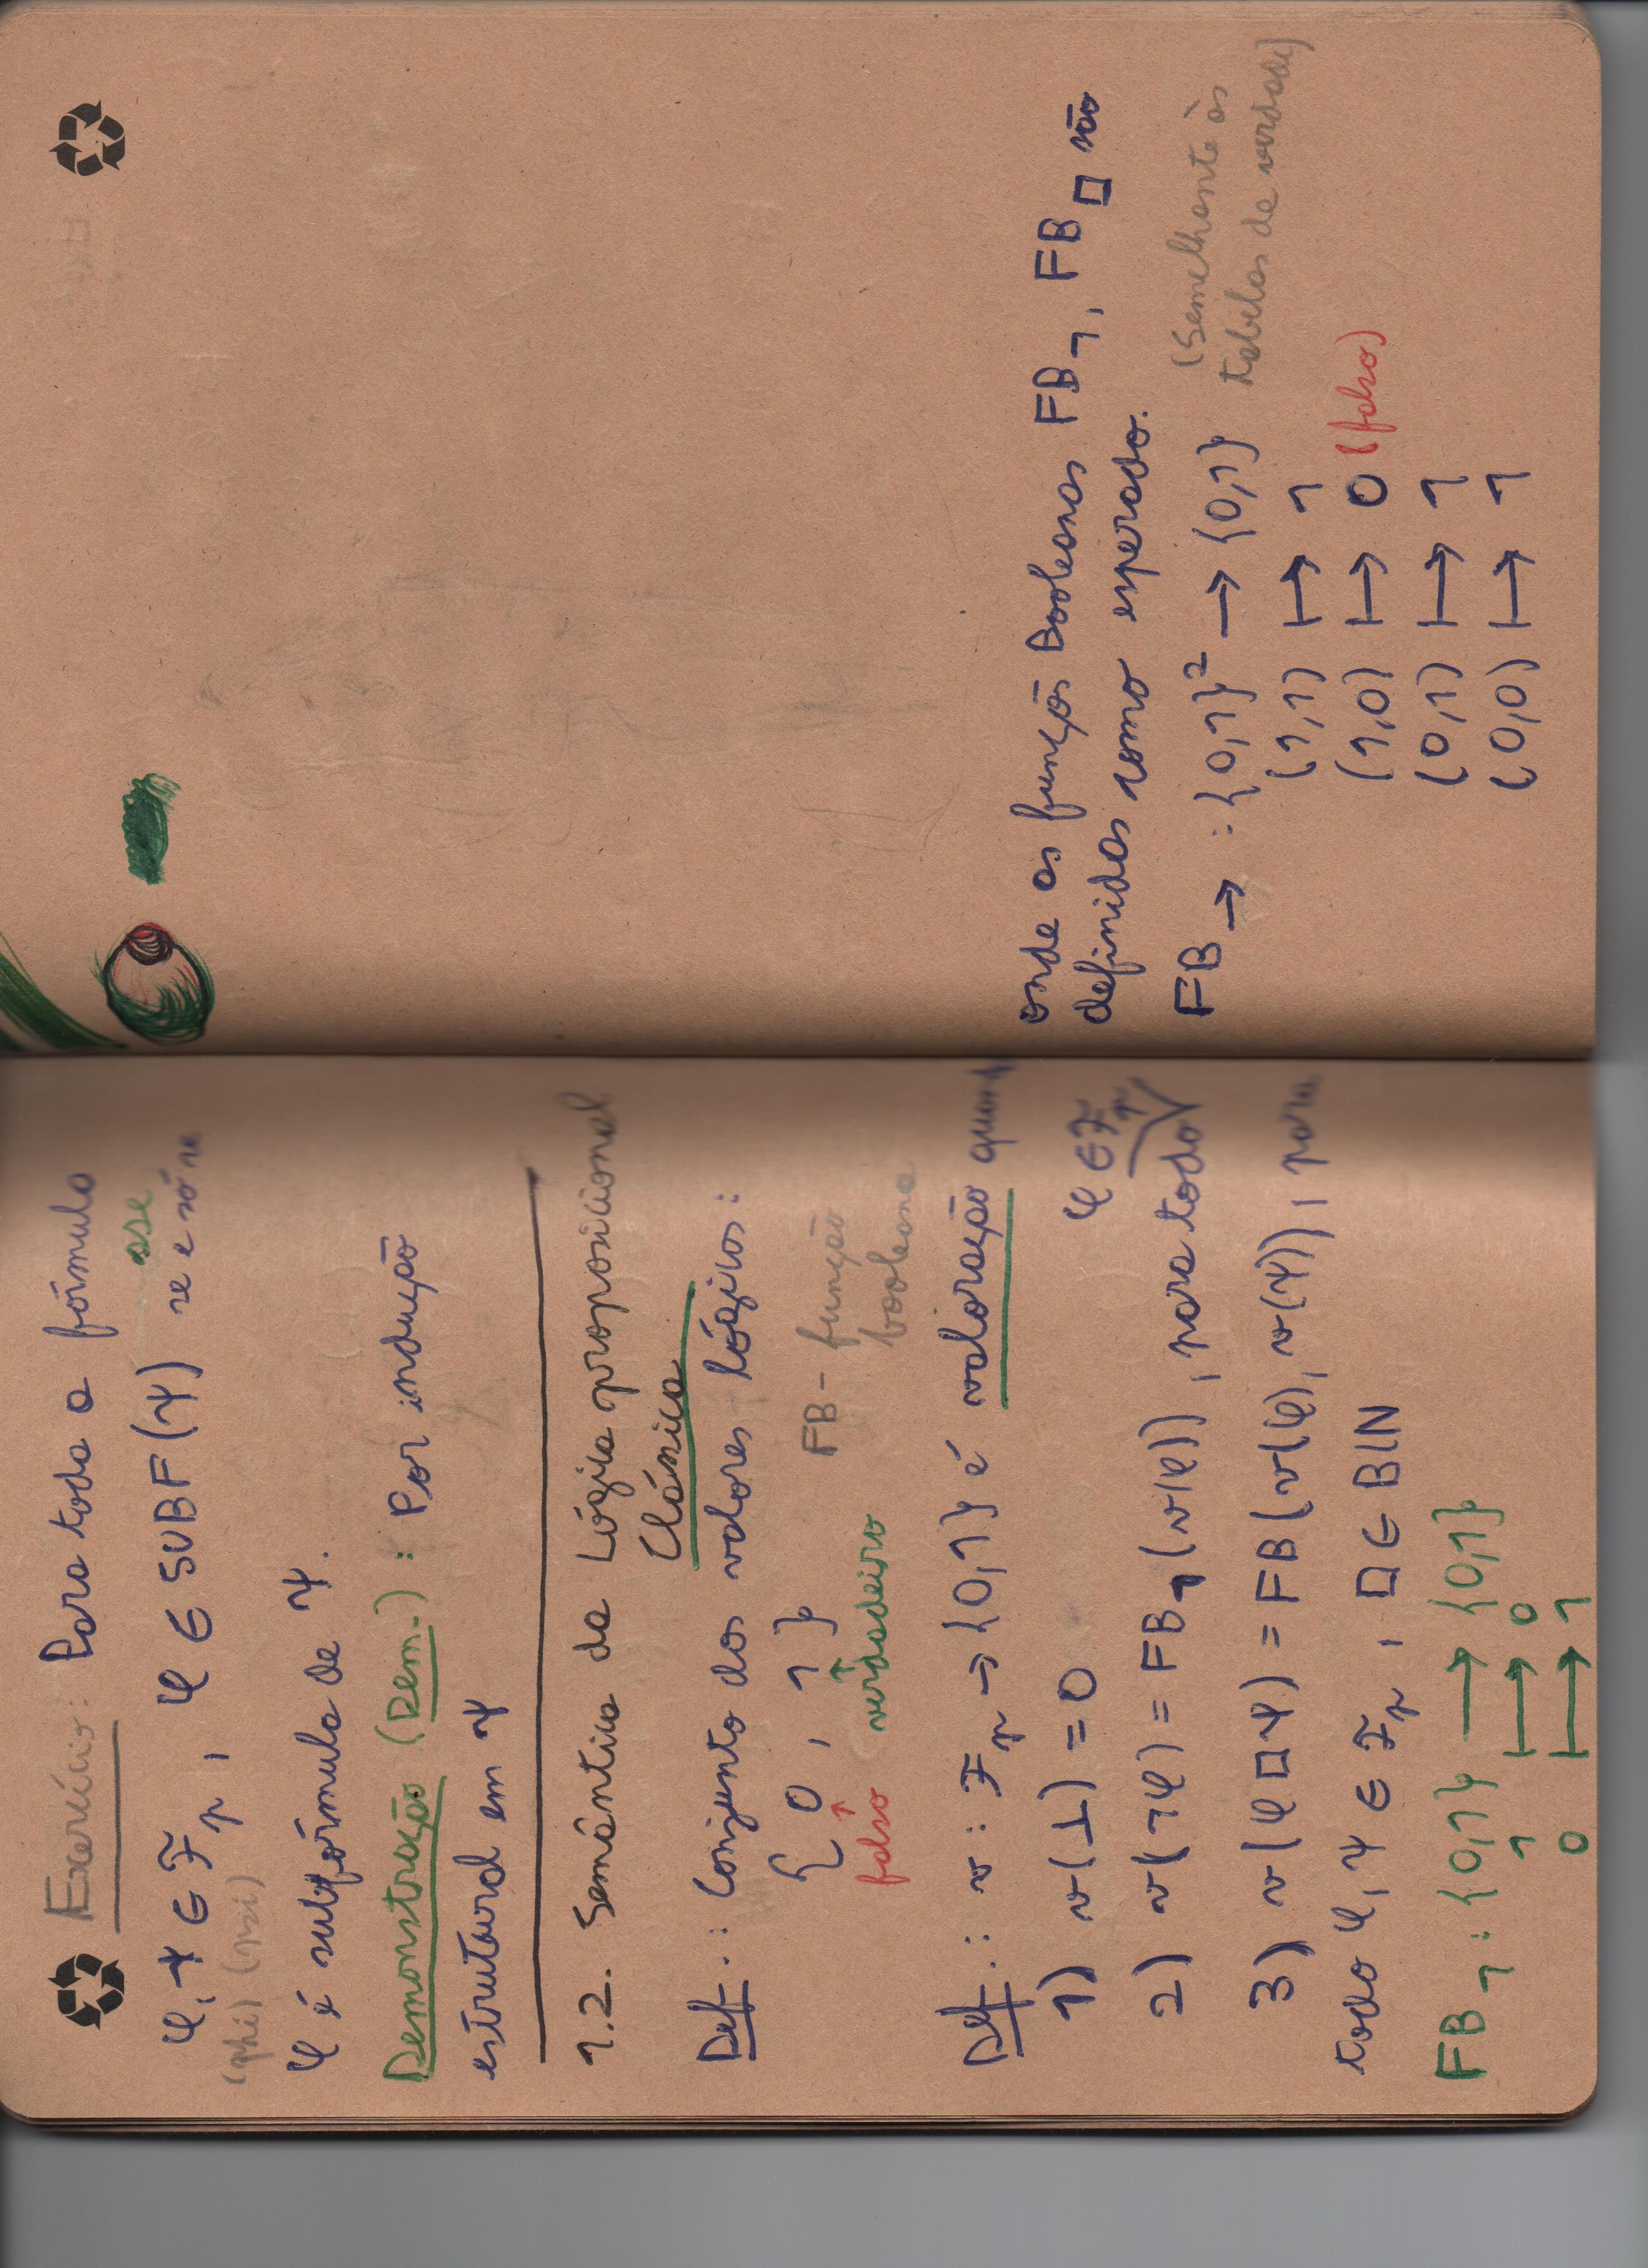 Exercício: Para toda a fórmula
sse
φ, ψ ∈ Fp, φ ∈ SUBF(ψ) se e só se
(phi) (psi)
φ é subfórmula de ψ.
Demonstração (Dem.): Por indução
estrutural em ψ
1.2. Semântica da Lógica proposicional
Clássica
Def.: Conjunto dos valores lógicos:
{ 0 , 1 }
↑ ↑
falso verdadeiro
FB - função
booleana
Def.: v : Fp → {0,1} é valoração quando
1) v(⊥) = 0
φ ∈ Fp
2) v(¬φ) = FB¬(v(φ)), para todo
3) v(φ □ ψ) = FB(v(φ), v(ψ)), para
todo φ, ψ ∈ Fp, □ ∈ BIN
FB¬ : {0,1} ⟶ {0,1}
1 ⟼ 0
0 ⟼ 1
onde as funções Booleanas FB¬, FB□ são
definidas como esperado.
FB→ : {0,1}² → {0,1}
(Semelhante às
tabelas de verdade)
(1,1) ↦ 1
(1,0) ↦ 0 (falso)
(0,1) ↦ 1
(0,0) ↦ 1